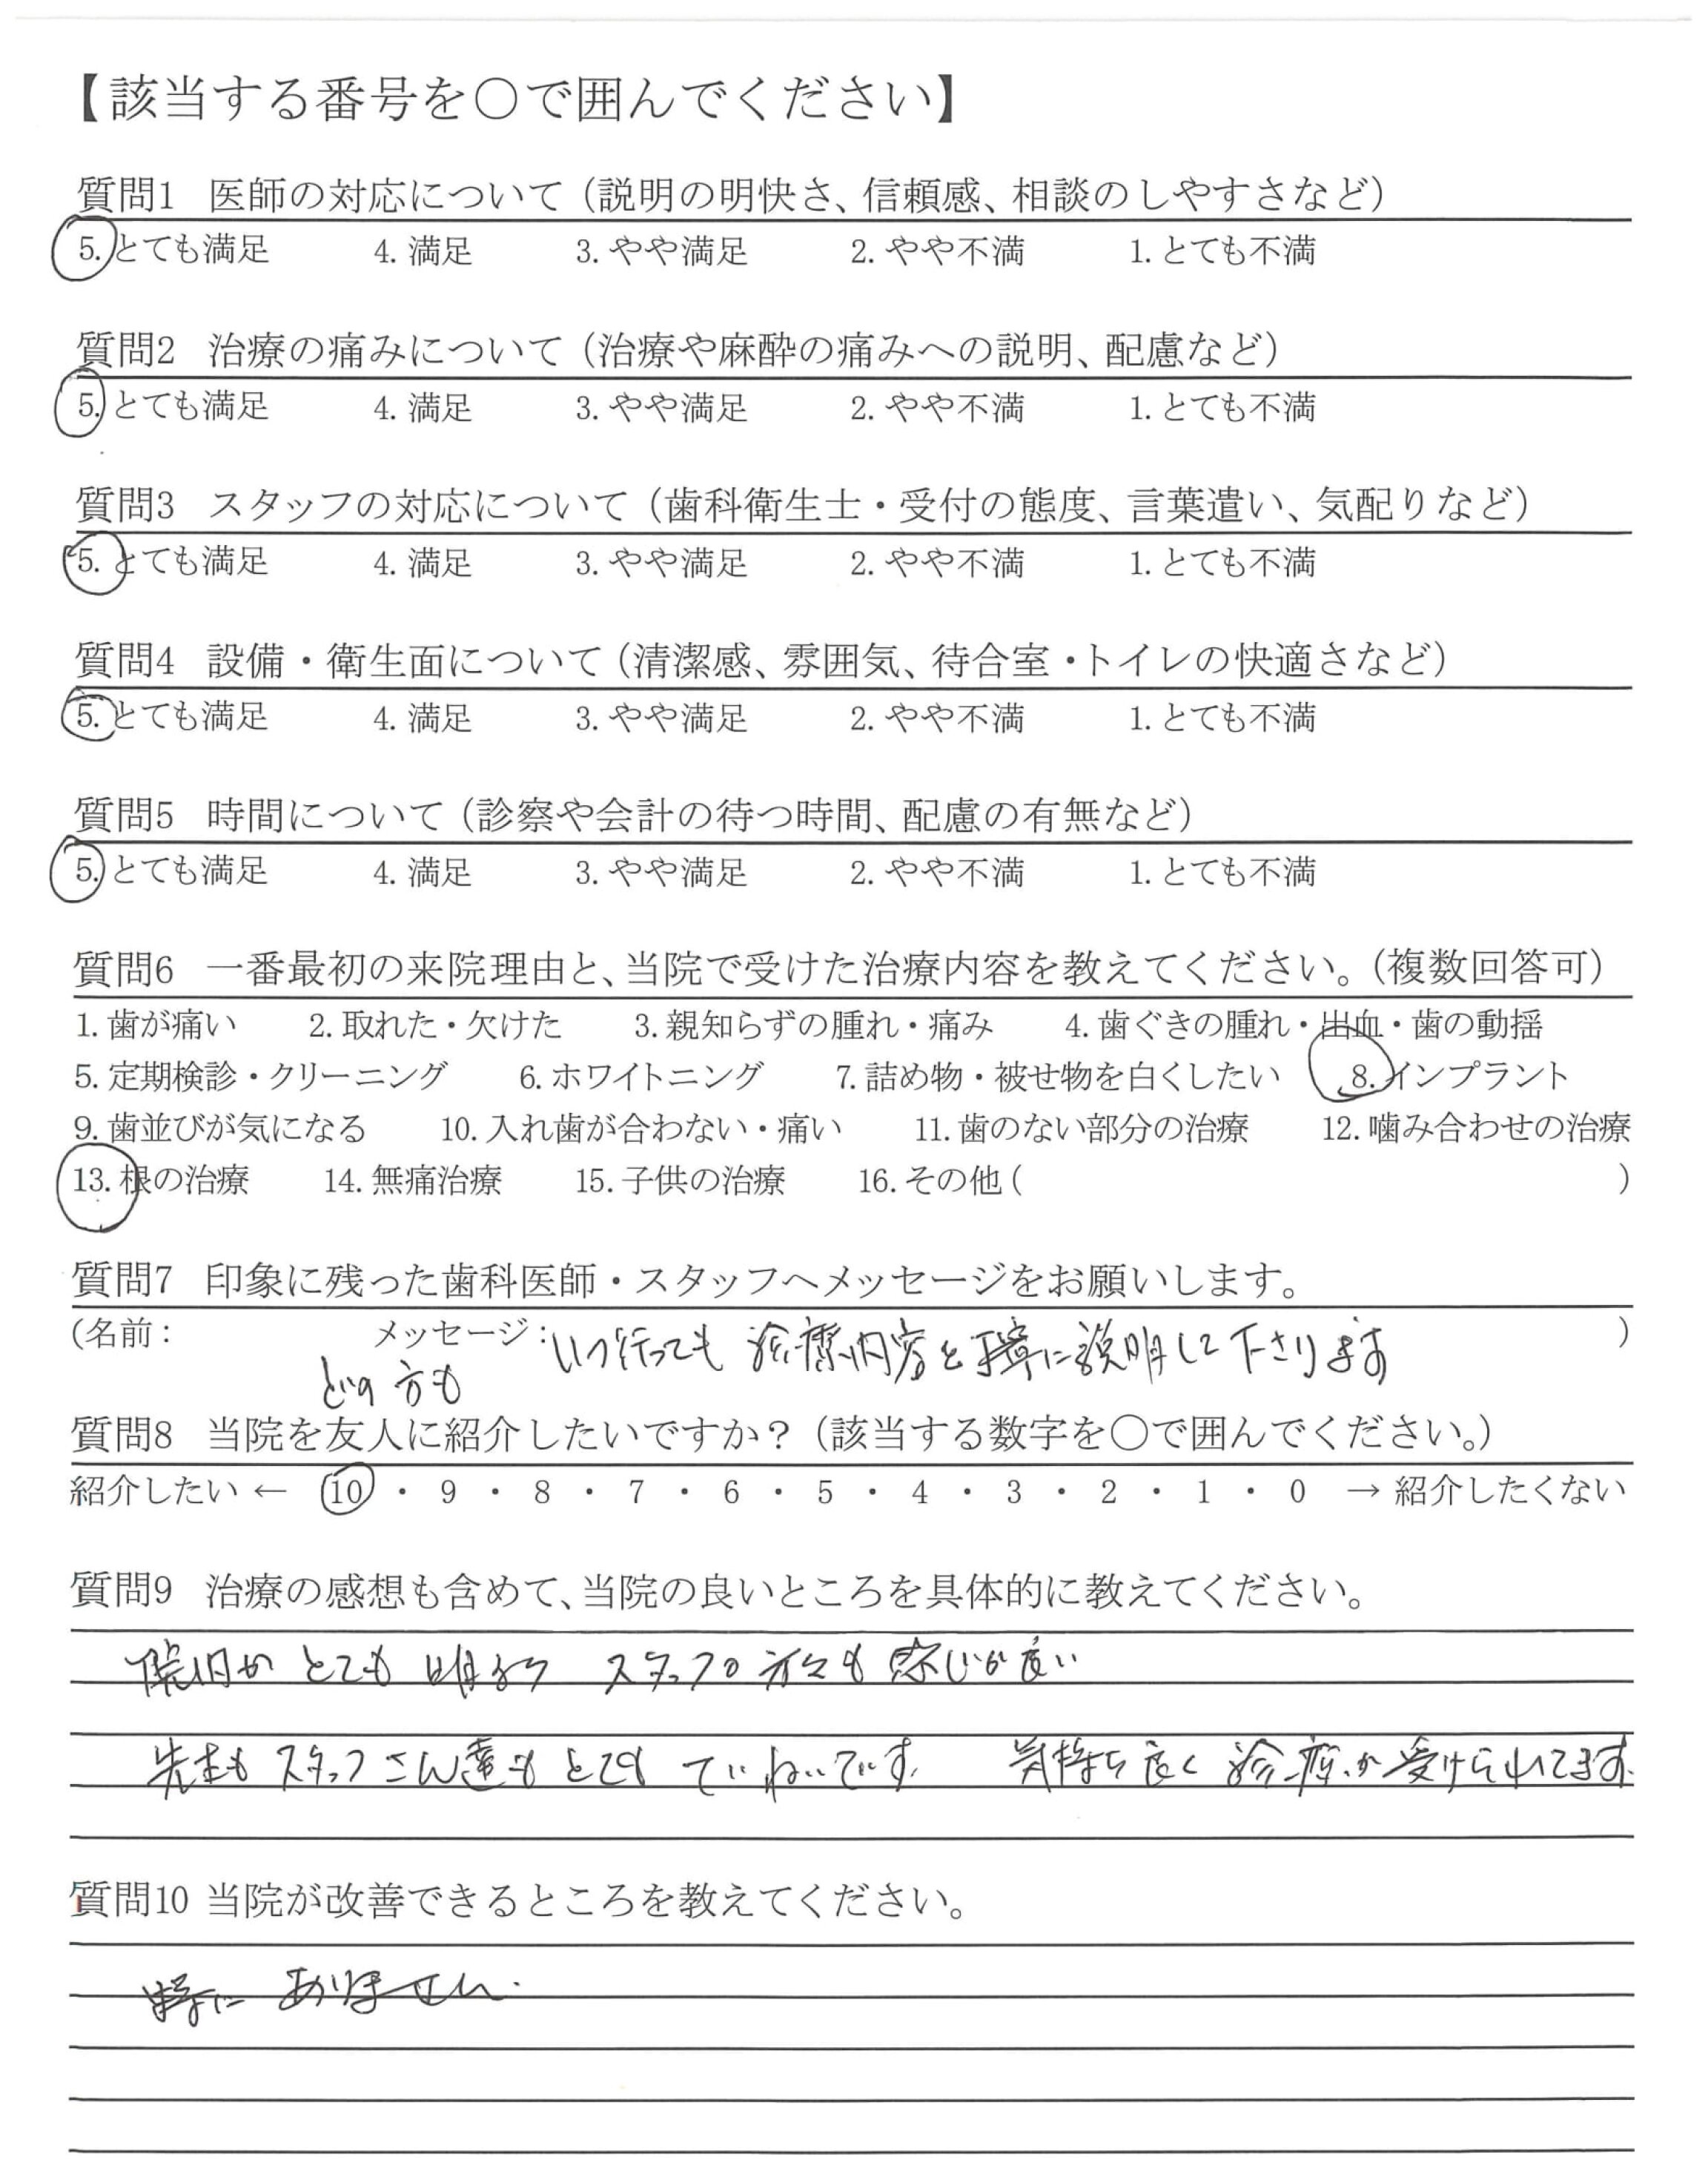 【該当する番号を○で囲んでください】
質問1 医師の対応について（説明の明快さ、信頼感、相談のしやすさなど）
5.とても満足 4.満足 3.やや満足 2.やや不満 1.とても不満
質問2 治療の痛みについて（治療や麻酔の痛みへの説明、配慮など）
5.とても満足 4.満足 3.やや満足 2.やや不満 1.とても不満
質問3 スタッフの対応について（歯科衛生士・受付の態度、言葉遣い、気配りなど）
5.とても満足 4.満足 3.やや満足 2.やや不満 1.とても不満
質問4 設備・衛生面について（清潔感、雰囲気、待合室・トイレの快適さなど）
5.とても満足 4.満足 3.やや満足 2.やや不満 1.とても不満
質問5 時間について（診察や会計の待つ時間、配慮の有無など）
5.とても満足 4.満足 3.やや満足 2.やや不満 1.とても不満
質問6 一番最初の来院理由と、当院で受けた治療内容を教えてください。（複数回答可）
1.歯が痛い 2.取れた・欠けた 3.親知らずの腫れ・痛み 4.歯ぐきの腫れ・出血・歯の動揺
5.定期検診・クリーニング 6.ホワイトニング 7.詰め物・被せ物を白くしたい 8.インプラント
9.歯並びが気になる 10.入れ歯が合わない・痛い 11.歯のない部分の治療 12.噛み合わせの治療
13.根の治療 14.無痛治療 15.子供の治療 16.その他（ ）
質問7 印象に残った歯科医師・スタッフへメッセージをお願いします。
（名前： メッセージ：いつ行っても 診療内容を丁寧に説明して下さります ）
どの方も
質問8 当院を友人に紹介したいですか？（該当する数字を○で囲んでください。）
紹介したい ← 10 ・ 9 ・ 8 ・ 7 ・ 6 ・ 5 ・ 4 ・ 3 ・ 2 ・ 1 ・ 0 → 紹介したくない
質問9 治療の感想も含めて、当院の良いところを具体的に教えてください。
院内が とても 明るく スタッフの 方々も 感じが良い
先生も スタッフさん達も とても ていねいです。 気持ち良く 診療が受けられてます。
質問10 当院が改善できるところを教えてください。
特に ありません.